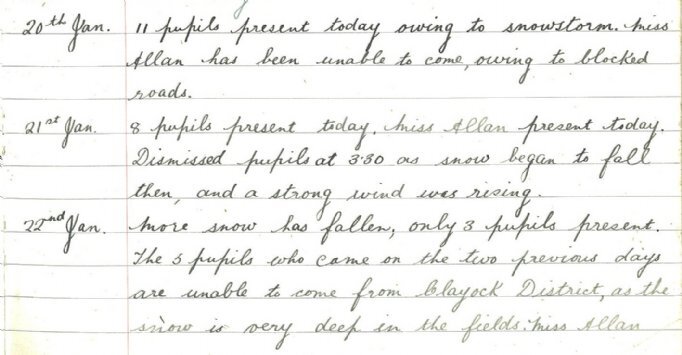 20th Jan. 11 pupils present today owing to snowstorm. Miss
Allan has been unable to come, owing to blocked
roads.
21st Jan. 8 pupils present today. Miss Allan present today.
Dismissed pupils at 3.30 as snow began to fall
then, and a strong wind was rising.
22nd Jan. More snow has fallen; only 3 pupils present.
The 5 pupils who came on the two previous days
are unable to come from Clayock District, as the
snow is very deep in the fields. Miss Allan